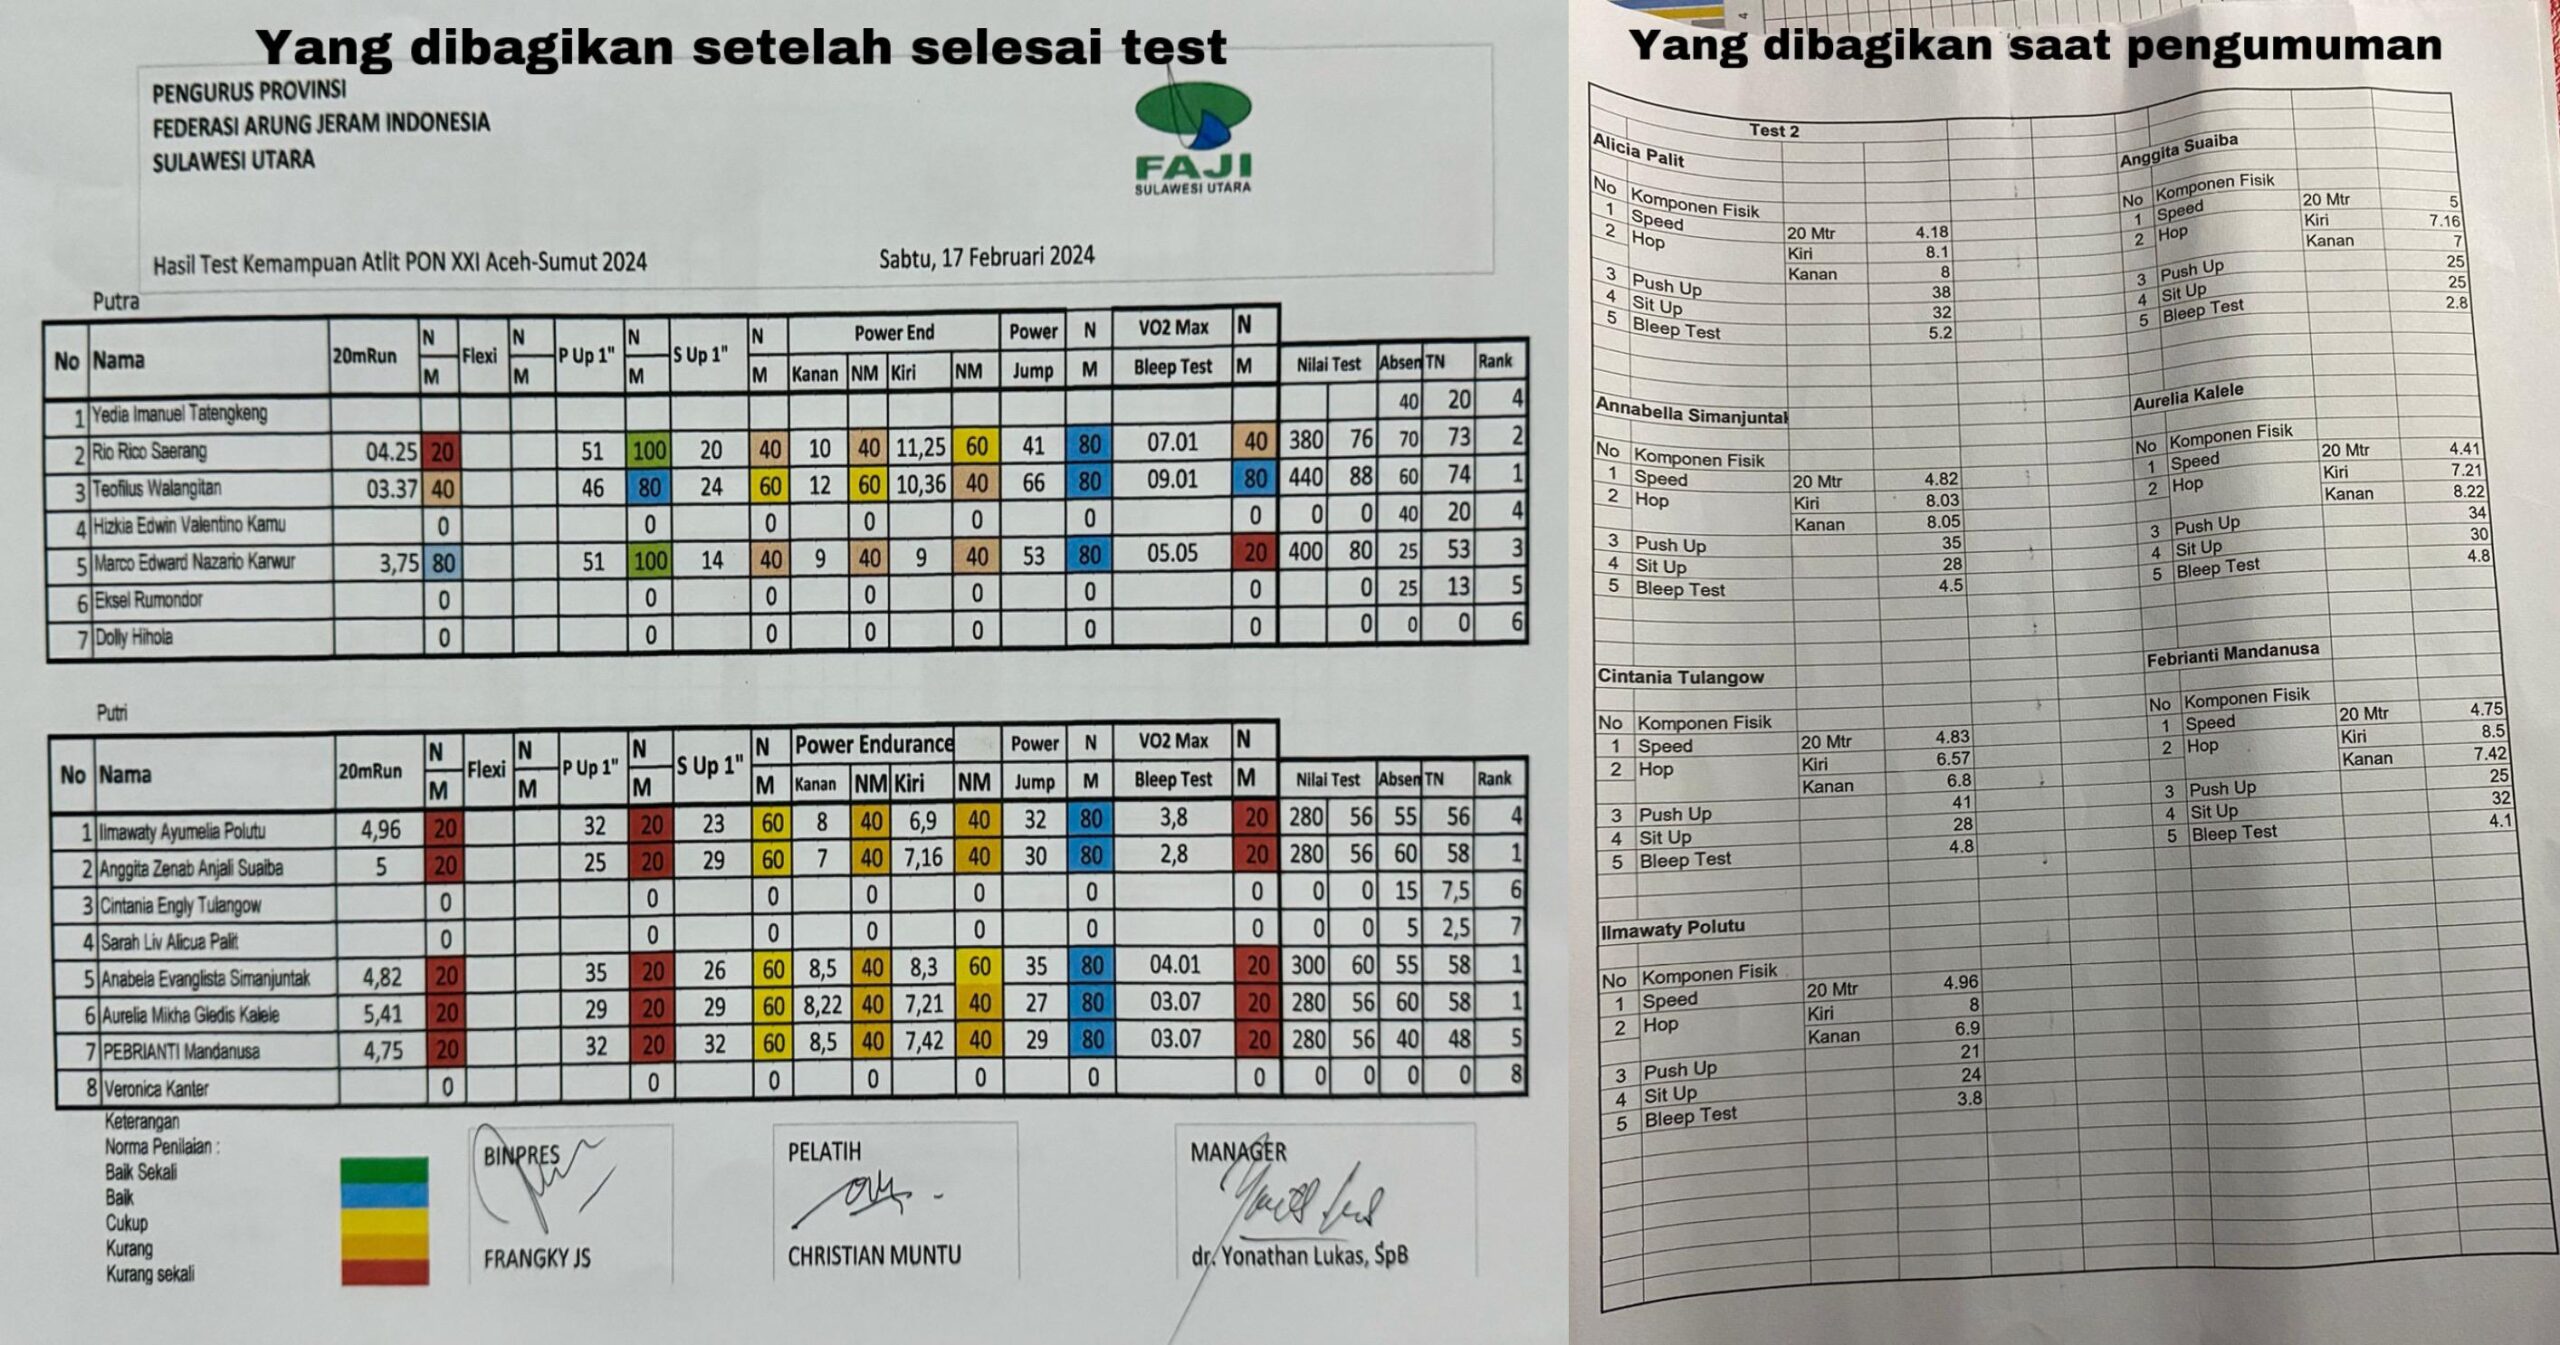 Yang dibagikan setelah selesai test
PENGURUS PROVINSI
FEDERASI ARUNG JERAM INDONESIA
SULAWESI UTARA
FAJI
SULAWESI UTARA
Hasil Test Kemampuan Atlit PON XXI Aceh-Sumut 2024 Sabtu, 17 Februari 2024
Putra
No Nama 20mRun N M Flexi N M P Up 1" N M S Up 1" N M Power End Kanan NM Kiri NM Power Jump N M VO2 Max Bleep Test N M Nilai Test Absen TN Rank
1 Yedia Imanuel Tatengkeng 40 20 4
2 Rio Rico Saerang 04.25 20 51 100 20 40 10 40 11,25 60 41 80 07.01 40 380 76 70 73 2
3 Teofilus Walangitan 03.37 40 46 80 24 60 12 60 10,36 40 66 80 09.01 80 440 88 60 74 1
4 Hizkia Edwin Valentino Kamu 0 0 0 0 0 0 0 0 0 40 20 4
5 Marco Edward Nazario Karwur 3,75 80 51 100 14 40 9 40 9 40 53 80 05.05 20 400 80 25 53 3
6 Eksel Rumondor 0 0 0 0 0 0 0 0 25 13 5
7 Dolly Hihola 0 0 0 0 0 0 0 0 0 0 6
Putri
No Nama 20mRun N M Flexi N M P Up 1" N M S Up 1" N M Power Endurance Kanan NM Kiri NM Power Jump N M VO2 Max Bleep Test N M Nilai Test Absen TN Rank
1 Ilmawaty Ayumelia Polutu 4,96 20 32 20 23 60 8 40 6,9 40 32 80 3,8 20 280 56 55 56 4
2 Anggita Zenab Anjali Suaiba 5 20 25 20 29 60 7 40 7,16 40 30 80 2,8 20 280 56 60 58 1
3 Cintania Engly Tulangow 0 0 0 0 0 0 0 0 0 15 7,5 6
4 Sarah Liv Alicua Palit 0 0 0 0 0 0 0 0 0 5 2,5 7
5 Anabela Evanglista Simanjuntak 4,82 20 35 20 26 60 8,5 40 8,3 60 35 80 04.01 20 300 60 55 58 1
6 Aurelia Mikha Gledis Kalele 5,41 20 29 20 29 60 8,22 40 7,21 40 27 80 03.07 20 280 56 60 58 1
7 PEBRIANTI Mandanusa 4,75 20 32 20 32 60 8,5 40 7,42 40 29 80 03.07 20 280 56 40 48 5
8 Veronica Kanter 0 0 0 0 0 0 0 0 0 0 0 8
Keterangan
Norma Penilaian :
Baik Sekali
Baik
Cukup
Kurang
Kurang sekali
BINPRES
FRANGKY JS
PELATIH
CHRISTIAN MUNTU
MANAGER
dr. Yonathan Lukas, SpB
Yang dibagikan saat pengumuman
Test 2
Alicia Palit
No Komponen Fisik
1 Speed 20 Mtr 4.18
2 Hop Kiri 8.1
Kanan 8
3 Push Up 38
4 Sit Up 32
5 Bleep Test 5.2
Annabella Simanjuntak
No Komponen Fisik
1 Speed 20 Mtr 4.82
2 Hop Kiri 8.03
Kanan 8.05
3 Push Up 35
4 Sit Up 28
5 Bleep Test 4.5
Cintania Tulangow
No Komponen Fisik
1 Speed 20 Mtr 4.83
2 Hop Kiri 6.57
Kanan 6.8
3 Push Up 41
4 Sit Up 28
5 Bleep Test 4.8
Ilmawaty Polutu
No Komponen Fisik
1 Speed 20 Mtr 4.96
2 Hop Kiri 8
Kanan 6.9
3 Push Up 21
4 Sit Up 24
5 Bleep Test 3.8
Anggita Suaiba
No Komponen Fisik
1 Speed 20 Mtr 5
2 Hop Kiri 7.16
Kanan 7
3 Push Up 25
4 Sit Up 25
5 Bleep Test 2.8
Aurelia Kalele
No Komponen Fisik
1 Speed 20 Mtr 4.41
2 Hop Kiri 7.21
Kanan 8.22
3 Push Up 34
4 Sit Up 30
5 Bleep Test 4.8
Febrianti Mandanusa
No Komponen Fisik
1 Speed 20 Mtr 4.75
2 Hop Kiri 8.5
Kanan 7.42
3 Push Up 25
4 Sit Up 32
5 Bleep Test 4.1